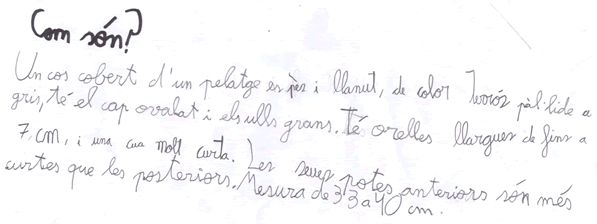 Com són?
Un cos cobert d'un pelatge es pès i llanut, de color marró pàl·lide a
gris, té el cap ovalat i els ulls grans. Té orelles llargues de fins a
7, cm, i una cua molt curta. Les seues potes anteriors són més
curtes que les posteriors. Mesura de 33 a 40 cm.